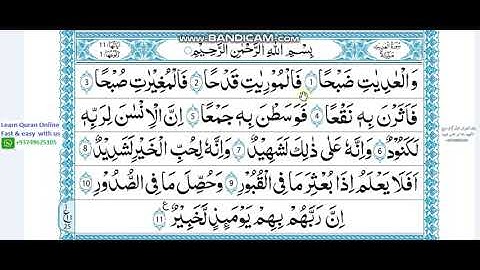 www.BANDICAM.com
بِسْمِ اللّٰهِ الرَّحْمٰنِ الرَّحِيْمِ
وَالْعٰدِيٰتِ ضَبْحًا ۙ﴿1﴾ فَالْمُوْرِيٰتِ قَدْحًا ۙ﴿2﴾ فَالْمُغِيْرٰتِ صُبْحًا ۙ﴿3﴾
فَاَثَرْنَ بِهٖ نَقْعًا ۙ﴿4﴾ فَوَسَطْنَ بِهٖ جَمْعًا ۙ﴿5﴾ اِنَّ الْاِنْسَانَ لِرَبِّهٖ
لَكَنُوْدٌ ۚ﴿6﴾ وَاِنَّهٗ عَلٰى ذٰلِكَ لَشَهِيْدٌ ۚ﴿7﴾ وَاِنَّهٗ لِحُبِّ الْخَيْرِ لَشَدِيْدٌ ؕ﴿8﴾
اَفَلَا يَعْلَمُ اِذَا بُعْثِرَ مَا فِى الْقُبُوْرِ ۙ﴿9﴾ وَحُصِّلَ مَا فِى الصُّدُوْرِ ۙ﴿10﴾
اِنَّ رَبَّهُمْ بِهِمْ يَوْمَئِذٍ لَّخَبِيْرٌ ﴿11﴾
Learn Quran Online
Fast & easy with us
+93749625305